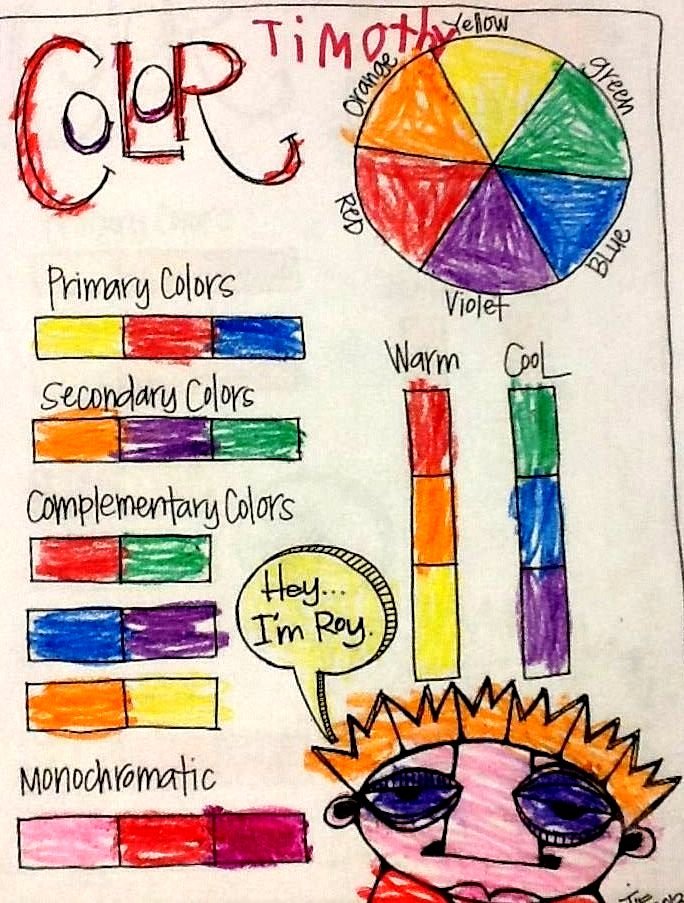 COLOR
Timothy
Yellow
Orange
green
RED
BLUE
Violet
Primary Colors
Secondary Colors
Complementary Colors
Monochromatic
Warm
Cool
Hey...
I'm Roy.